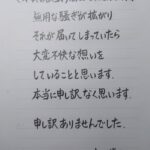 無用な騒ぎが拡がり
それが届いてしまっていたら
大変不快な想いを
していることと思います。
本当に申し訳なく思います。
申し訳ありませんでした。